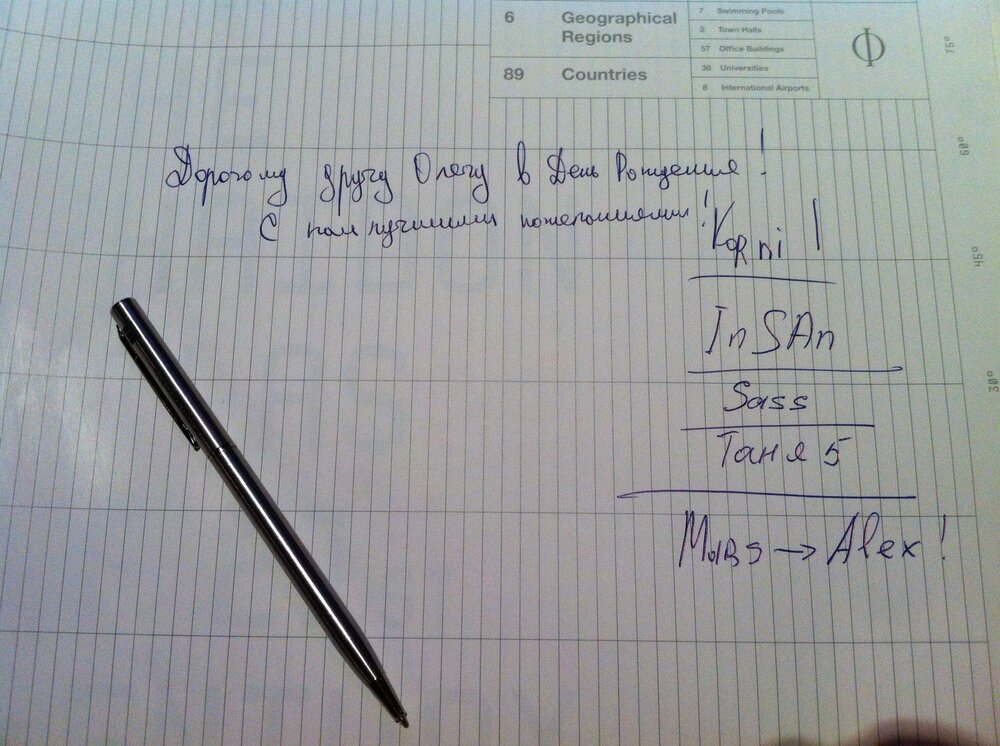 6 Geographical Regions
89 Countries
7 Swimming Pools
2 Town Halls
57 Office Buildings
38 Universities
8 International Airports
75°
60°
45°
30°
Дорогому другу Олегу в День Рождения!
С наилучшими пожеланиями!
KoRni !
InSAn
Sass
Таня 5
→ Alex!